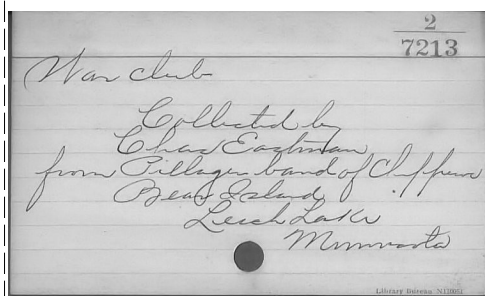 2
7213
War club
Collected by
Chas Eastman
from Pillager band of Chippewa
Bear Island
Leech Lake
Minnesota
Library Bureau